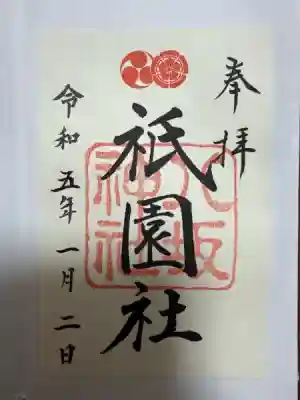 奉拝
八坂
神社
祇園社
令和五年一月二日